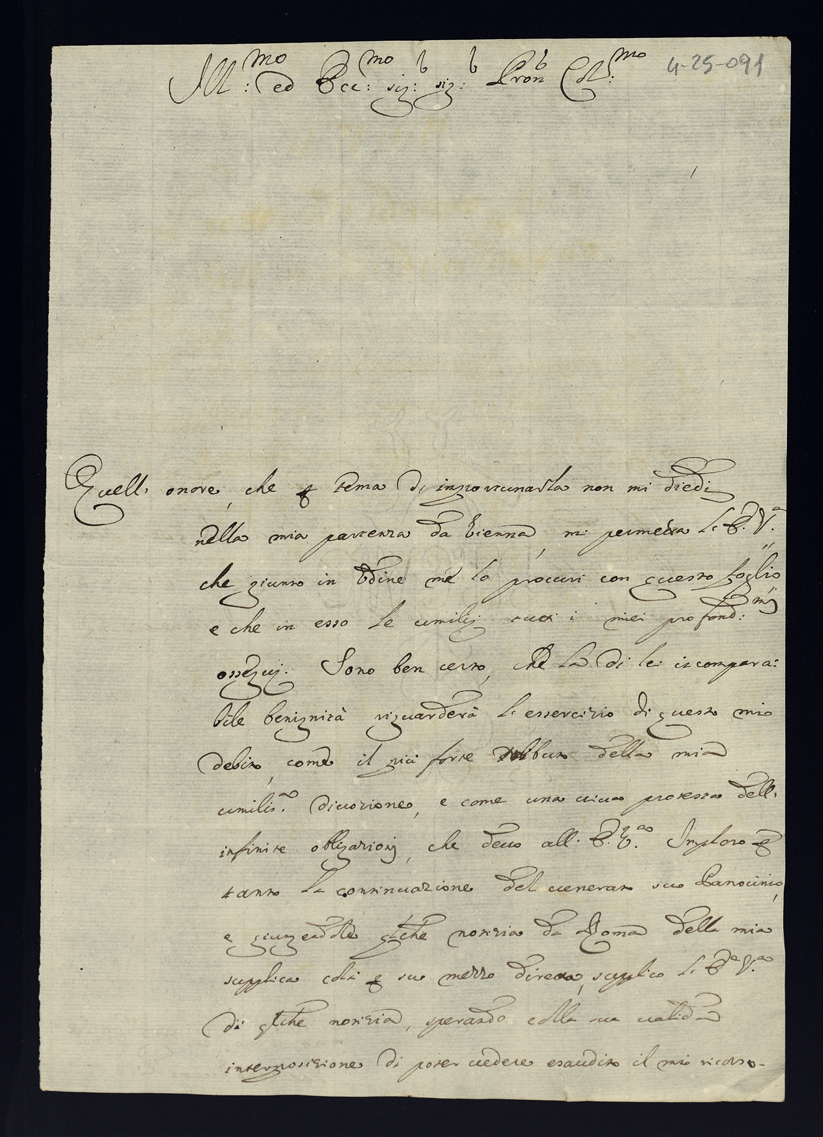 Ill:mo ed Ecc:mo sig:r sig:r Pron Col:mo
4-25-091
Quell' onore, che p tema di importunarla non mi diedi
nella mia partenza da Vienna, mi permetta l' E. V.a
che giunto in Udine me lo procuri con questo foglio
e che in esso le umilij tutti i miei profond:mi
ossequij. Sono ben certo, che la di lei incompara:
bile benignità riguarderà l' essercizio di questo mio
debito, come il più forte tributo della mia
umilis:ma divozione, e come una viva protesta dell'
infinite obligazioni, che devo all' E. V.a Imploro p
tanto la continuazione del venerato suo Patrocinio,
e giungendole qlche notizia da Roma della mia
supplica colà p suo mezzo diretta, supplico l' E.a V.a
di qlche notizia, sperando colla sua valida
interposizione di poter vedere esaudito il mio ricorso.